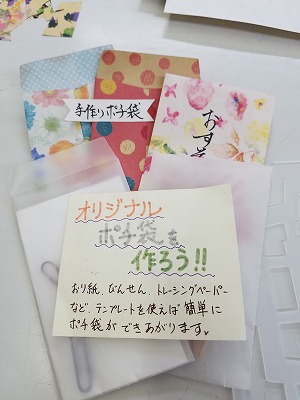 手作りポチ袋
おす
オリジナル
ポチ袋を
作ろう!!
おり紙、びんせん、トレーシングペーパー
など、テンプレートを使えば簡単に
ポチ袋ができあがります。